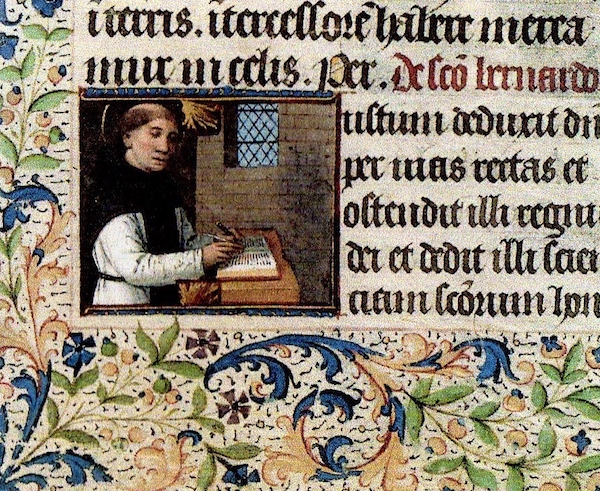 ī terris. ītercessorē habere merea
mur in celis. Per. De scō bernardo
ustum deduxit dn̄
per uias rectas et
ostendit illi regnū
dei et dedit illi scien
ciam scōrum hon